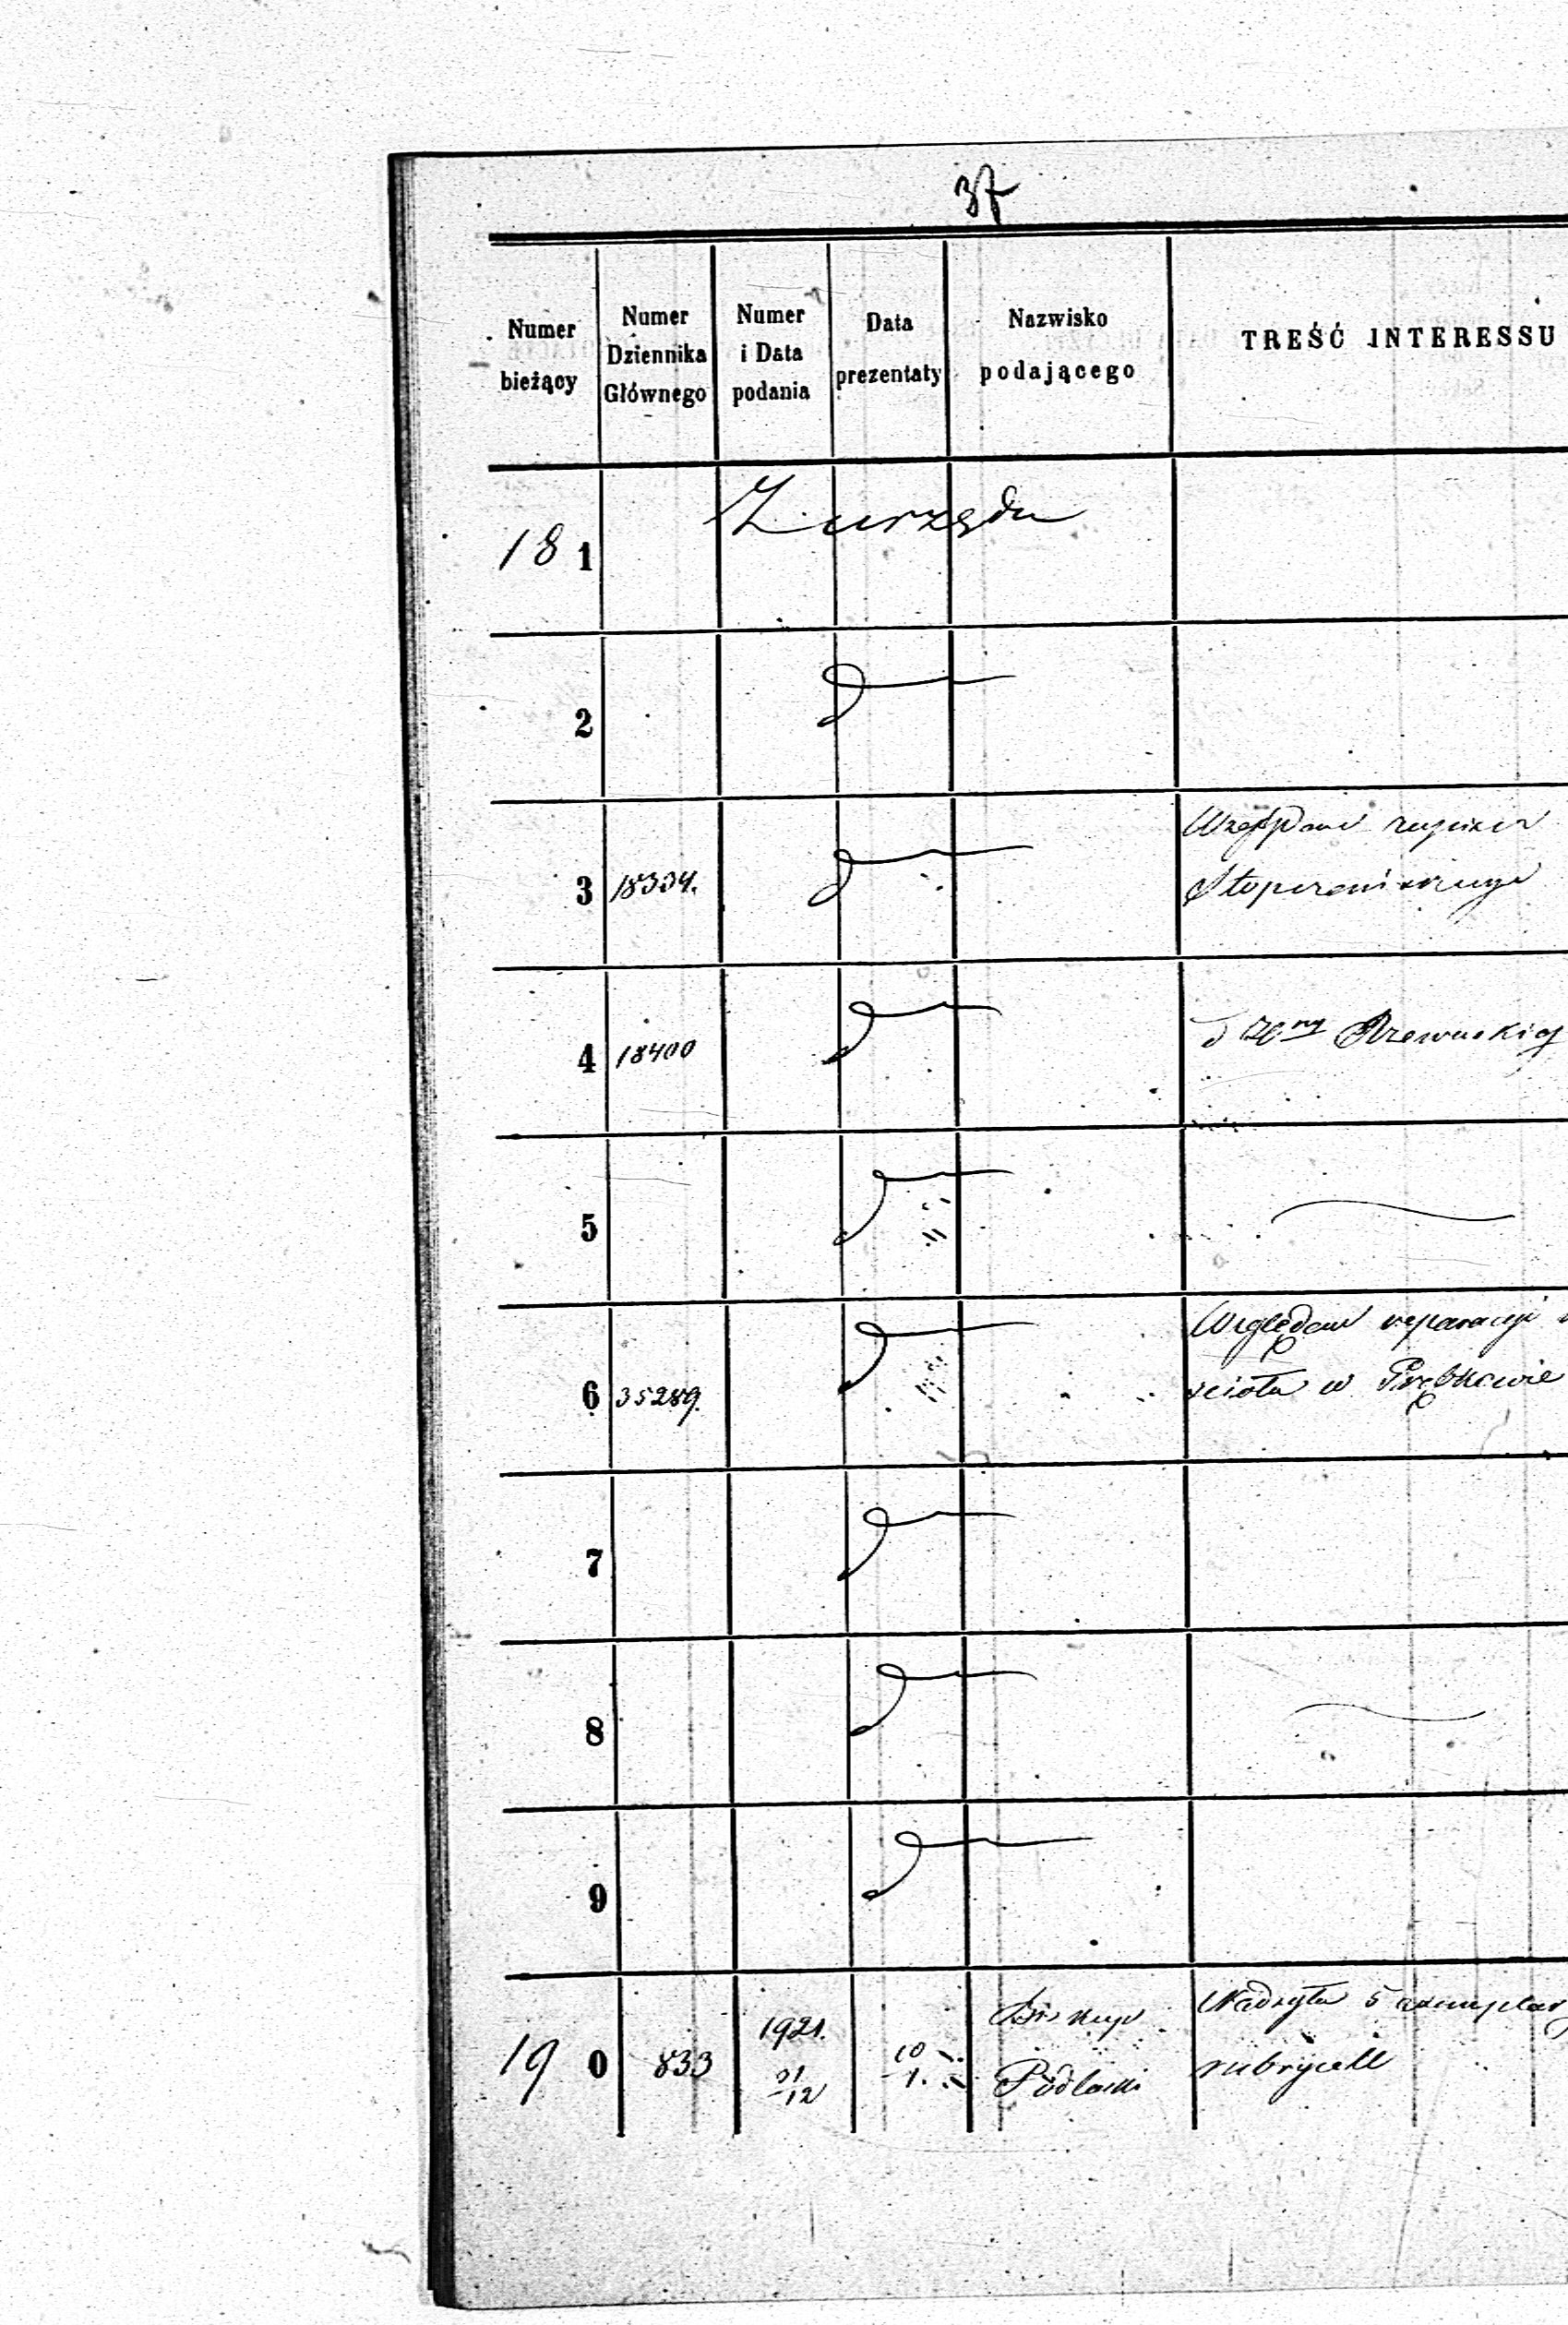 37
Numer bieżący
Numer Dziennika Głównego
Numer i Data podania
Data prezentaty
Nazwisko podającego
TREŚĆ INTERESSU
18 1 Z urzędu
2
3 18334.
4 18400
5
6 35289. Względem reparacyi
w Prębkowie
7
8
9
19 0 833 1921. 31/12 10/1. Biskup Podlaski Nadsyła 5 exemplarzy
rubrycell